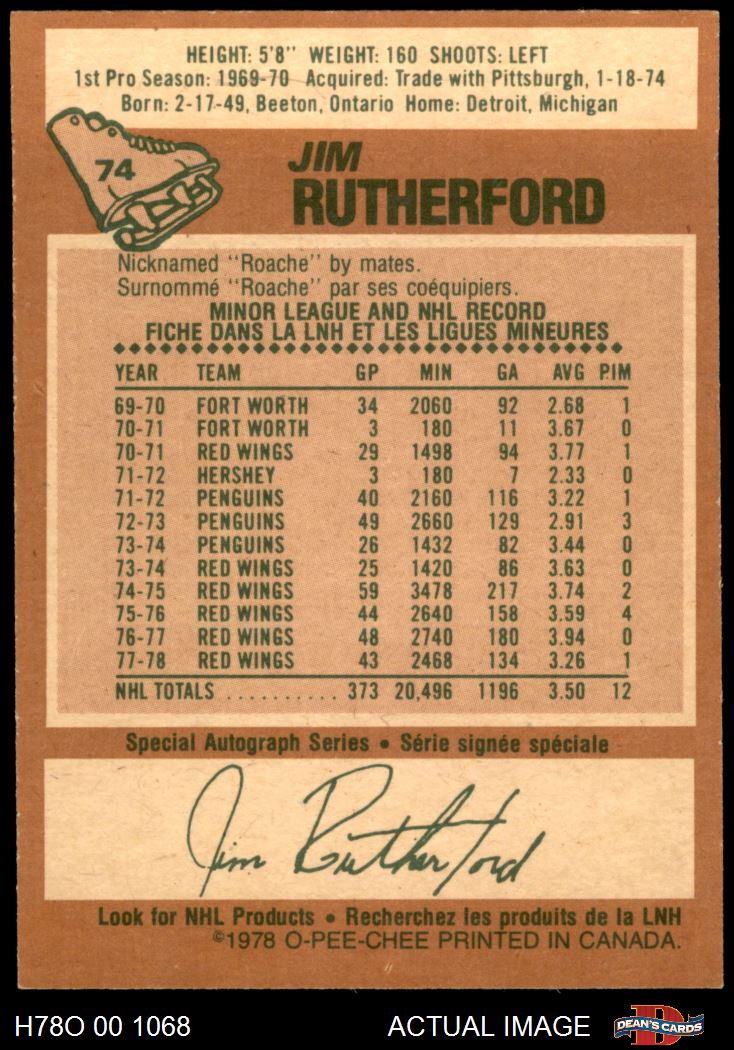 HEIGHT: 5'8" WEIGHT: 160 SHOOTS: LEFT
1st Pro Season: 1969-70 Acquired: Trade with Pittsburgh, 1-18-74
Born: 2-17-49, Beeton, Ontario Home: Detroit, Michigan
74
JIM
RUTHERFORD
Nicknamed "Roache" by mates.
Surnommé "Roache" par ses coéquipiers.
MINOR LEAGUE AND NHL RECORD
FICHE DANS LA LNH ET LES LIGUES MINEURES
YEAR TEAM GP MIN GA AVG PIM
69-70 FORT WORTH 34 2060 92 2.68 1
70-71 FORT WORTH 3 180 11 3.67 0
70-71 RED WINGS 29 1498 94 3.77 1
71-72 HERSHEY 3 180 7 2.33 0
71-72 PENGUINS 40 2160 116 3.22 1
72-73 PENGUINS 49 2660 129 2.91 3
73-74 PENGUINS 26 1432 82 3.44 0
73-74 RED WINGS 25 1420 86 3.63 0
74-75 RED WINGS 59 3478 217 3.74 2
75-76 RED WINGS 44 2640 158 3.59 4
76-77 RED WINGS 48 2740 180 3.94 0
77-78 RED WINGS 43 2468 134 3.26 1
NHL TOTALS .......... 373 20,496 1196 3.50 12
Special Autograph Series • Série signée spéciale
Jim Rutherford
Look for NHL Products • Recherchez les produits de la LNH
©1978 O-PEE-CHEE PRINTED IN CANADA.
H78O 00 1068 ACTUAL IMAGE DEAN'S CARDS